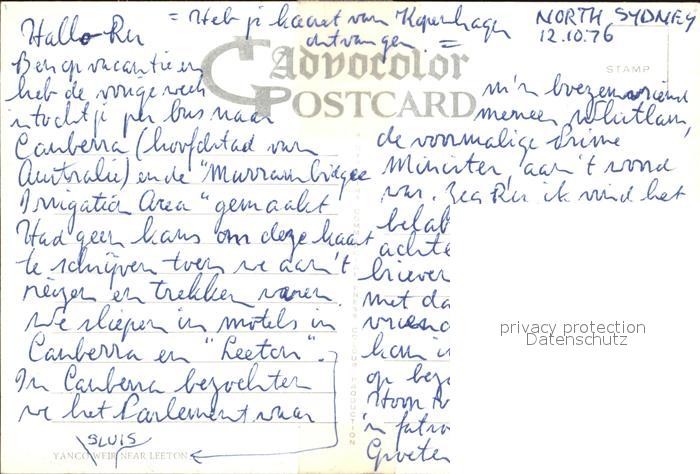 = Heb je kaart van Kopenhagen
ontvangen. =
NORTH SYDNEY
12.10.76
Hallo Ria
Advocolor
POSTCARD
STAMP
Ben op vacantie en
heb de vorige week
'n tochtje per bus naar
Canberra (hoofdstad van
Australië) en de "Murrambidgee
Irrigation Area" gemaakt
Had geen kans om deze kaart
te schrijven toen we aan't
reizen en trekken waren.
We sliepen in motels in
Canberra en "Leeton".
In Canberra bezochten
we het Parlement waar
SLUIS
YANCO WEIR NEAR LEETON
m'n boezemvriend
meneer Whitlam,
de voormalige Prime
Minister, aan't woord
was. Zeg Ria ik vind het
belab
achte
brieven
met da
vriend
kom i
op bez
Hoor
in
Groeten
privacy protection
Datenschutz